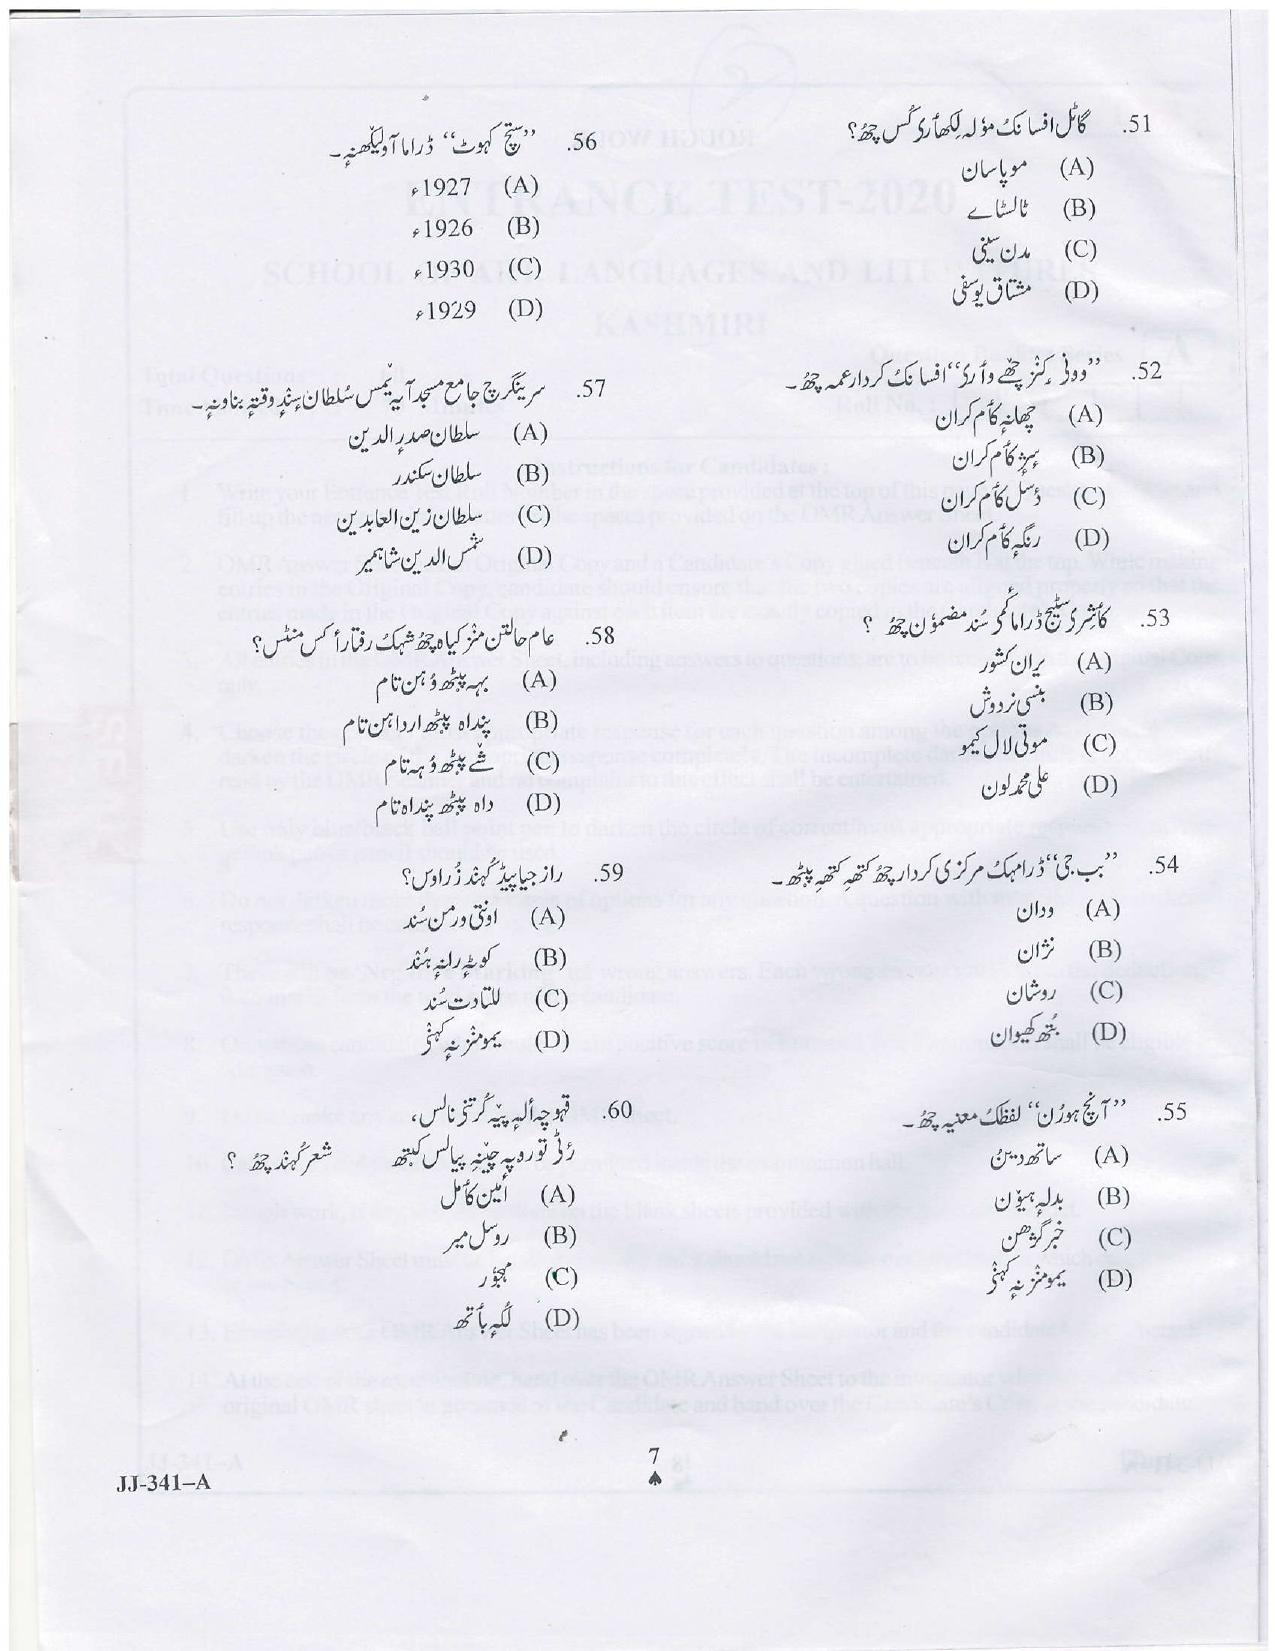 51. گاٹل افسانک مؤلہ لِکھأرۍ کُس چھُ؟
(A) موپاسان
(B) ٹالسٹاے
(C) مدن سینی
(D) مشتاق یوٗسفی
52. ”وونۍ کنز چھےٚ وأرۍ“ افسانک کردار عمہ چھُ۔
(A) چھانہٕ کأم کران
(B) بیٚہژِ کأم کران
(C) ڈسل کأم کران
(D) رنگہٕ کأم کران
53. کأشِرۍ سٹیج ڈراما کٔمۍ سُند مضموٗن چھُ ؟
(A) بران کشور
(B) بنسی نردوش
(C) موتی لال کیمو
(D) علی محمد لون
54. ”بب جی“ ڈرامہک مرکزی کردار چھُ کتھہِ کتھہِ پیٚٹھ۔
(A) ودان
(B) نژان
(C) روشان
(D) بُتھ کھیوان
55. ”آنچ ہورُن“ لفظک معنیہ چھُ۔
(A) ساتھ دیُن
(B) بدلہٕ ہیوٚن
(C) خبر گژھن
(D) یمو منٛزٕ نہٕ کہنۍ
56. ”سَتٕچ کہوٹ“ ڈراما آو لیکھنہٕ۔
(A) 1927ء
(B) 1926ء
(C) 1930ء
(D) 1929ء
57. سرینگرچ جامع مسجد آیہِ یٚمس سُلطان سٕندِ وقتہٕ بناونہٕ۔
(A) سلطان صدرِ الدین
(B) سلطان سکندر
(C) سلطان زین العابدین
(D) شمس الدین شاہمیر
58. عام حالتن منٛز کیاہ چھُ شہک رفتار أکس منٹس؟
(A) بہہ پیٚٹھ ؤہن تام
(B) پنداہ پیٚٹھ ارداہن تام
(C) شےٚ پیٚٹھ ؤہہ تام
(D) داہ پیٚٹھ پنداہ تام
59. راز جیاپیڈ کہُند زُراوس؟
(A) اونتی ورمن سُند
(B) کوٹہٕ رانہٕ ہُند
(C) للتادت سُند
(D) یمو منٛزٕ نہٕ کہنۍ
60. قہوچہ ألہٕ پیٚیہِ کُرتنۍ نالس،
رٔٹۍ تورہ پہ چیٚنہٕ پیالس کیتھ شعر کہُند چھُ ؟
(A) أمین کأمل
(B) رسل میر
(C) مہجوٗر
(D) لکہٕ بأتھ
7
JJ-341–A